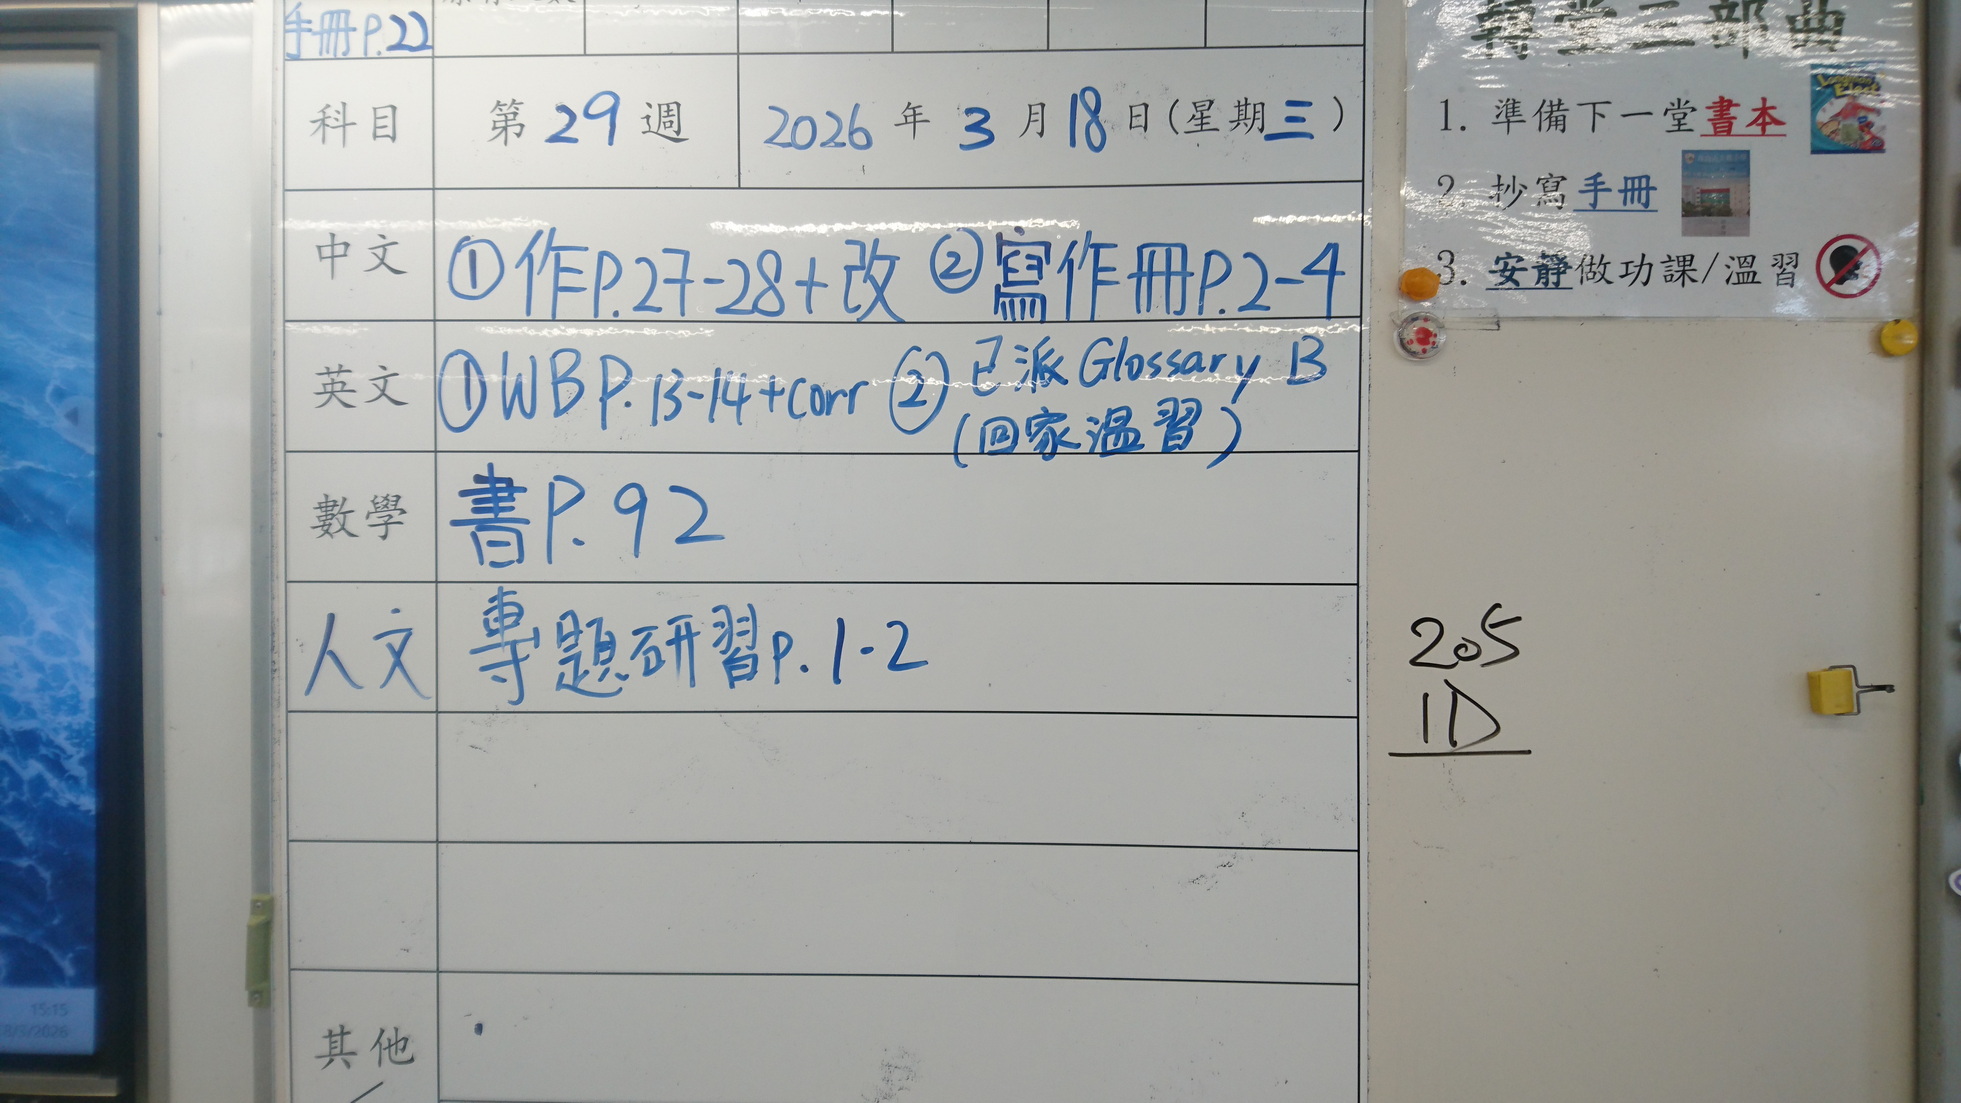 手冊P.22
科目 第29週 2026年3月18日(星期三)
中文 ①作P.27-28+改 ②寫作冊P.2-4
英文 ①WB P.13-14+corr ②已派Glossary B
(回家溫習)
數學 書P.92
人文 專題研習p.1-2
其他
轉堂三部曲
1. 準備下一堂書本
2. 抄寫手冊
3. 安靜做功課/溫習
205
1D
15:15